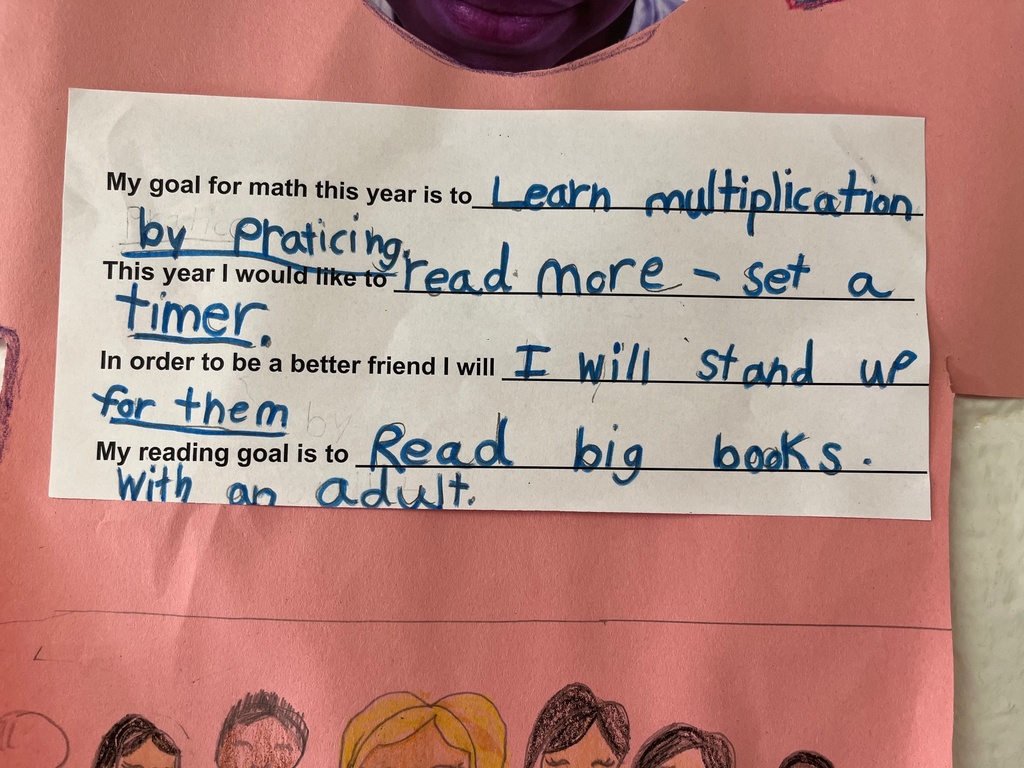 My goal for math this year is to Learn multiplication
by praticing.
This year I would like to read more - set a
timer.
In order to be a better friend I will I will stand up
for them by
My reading goal is to Read big books.
with an adult.